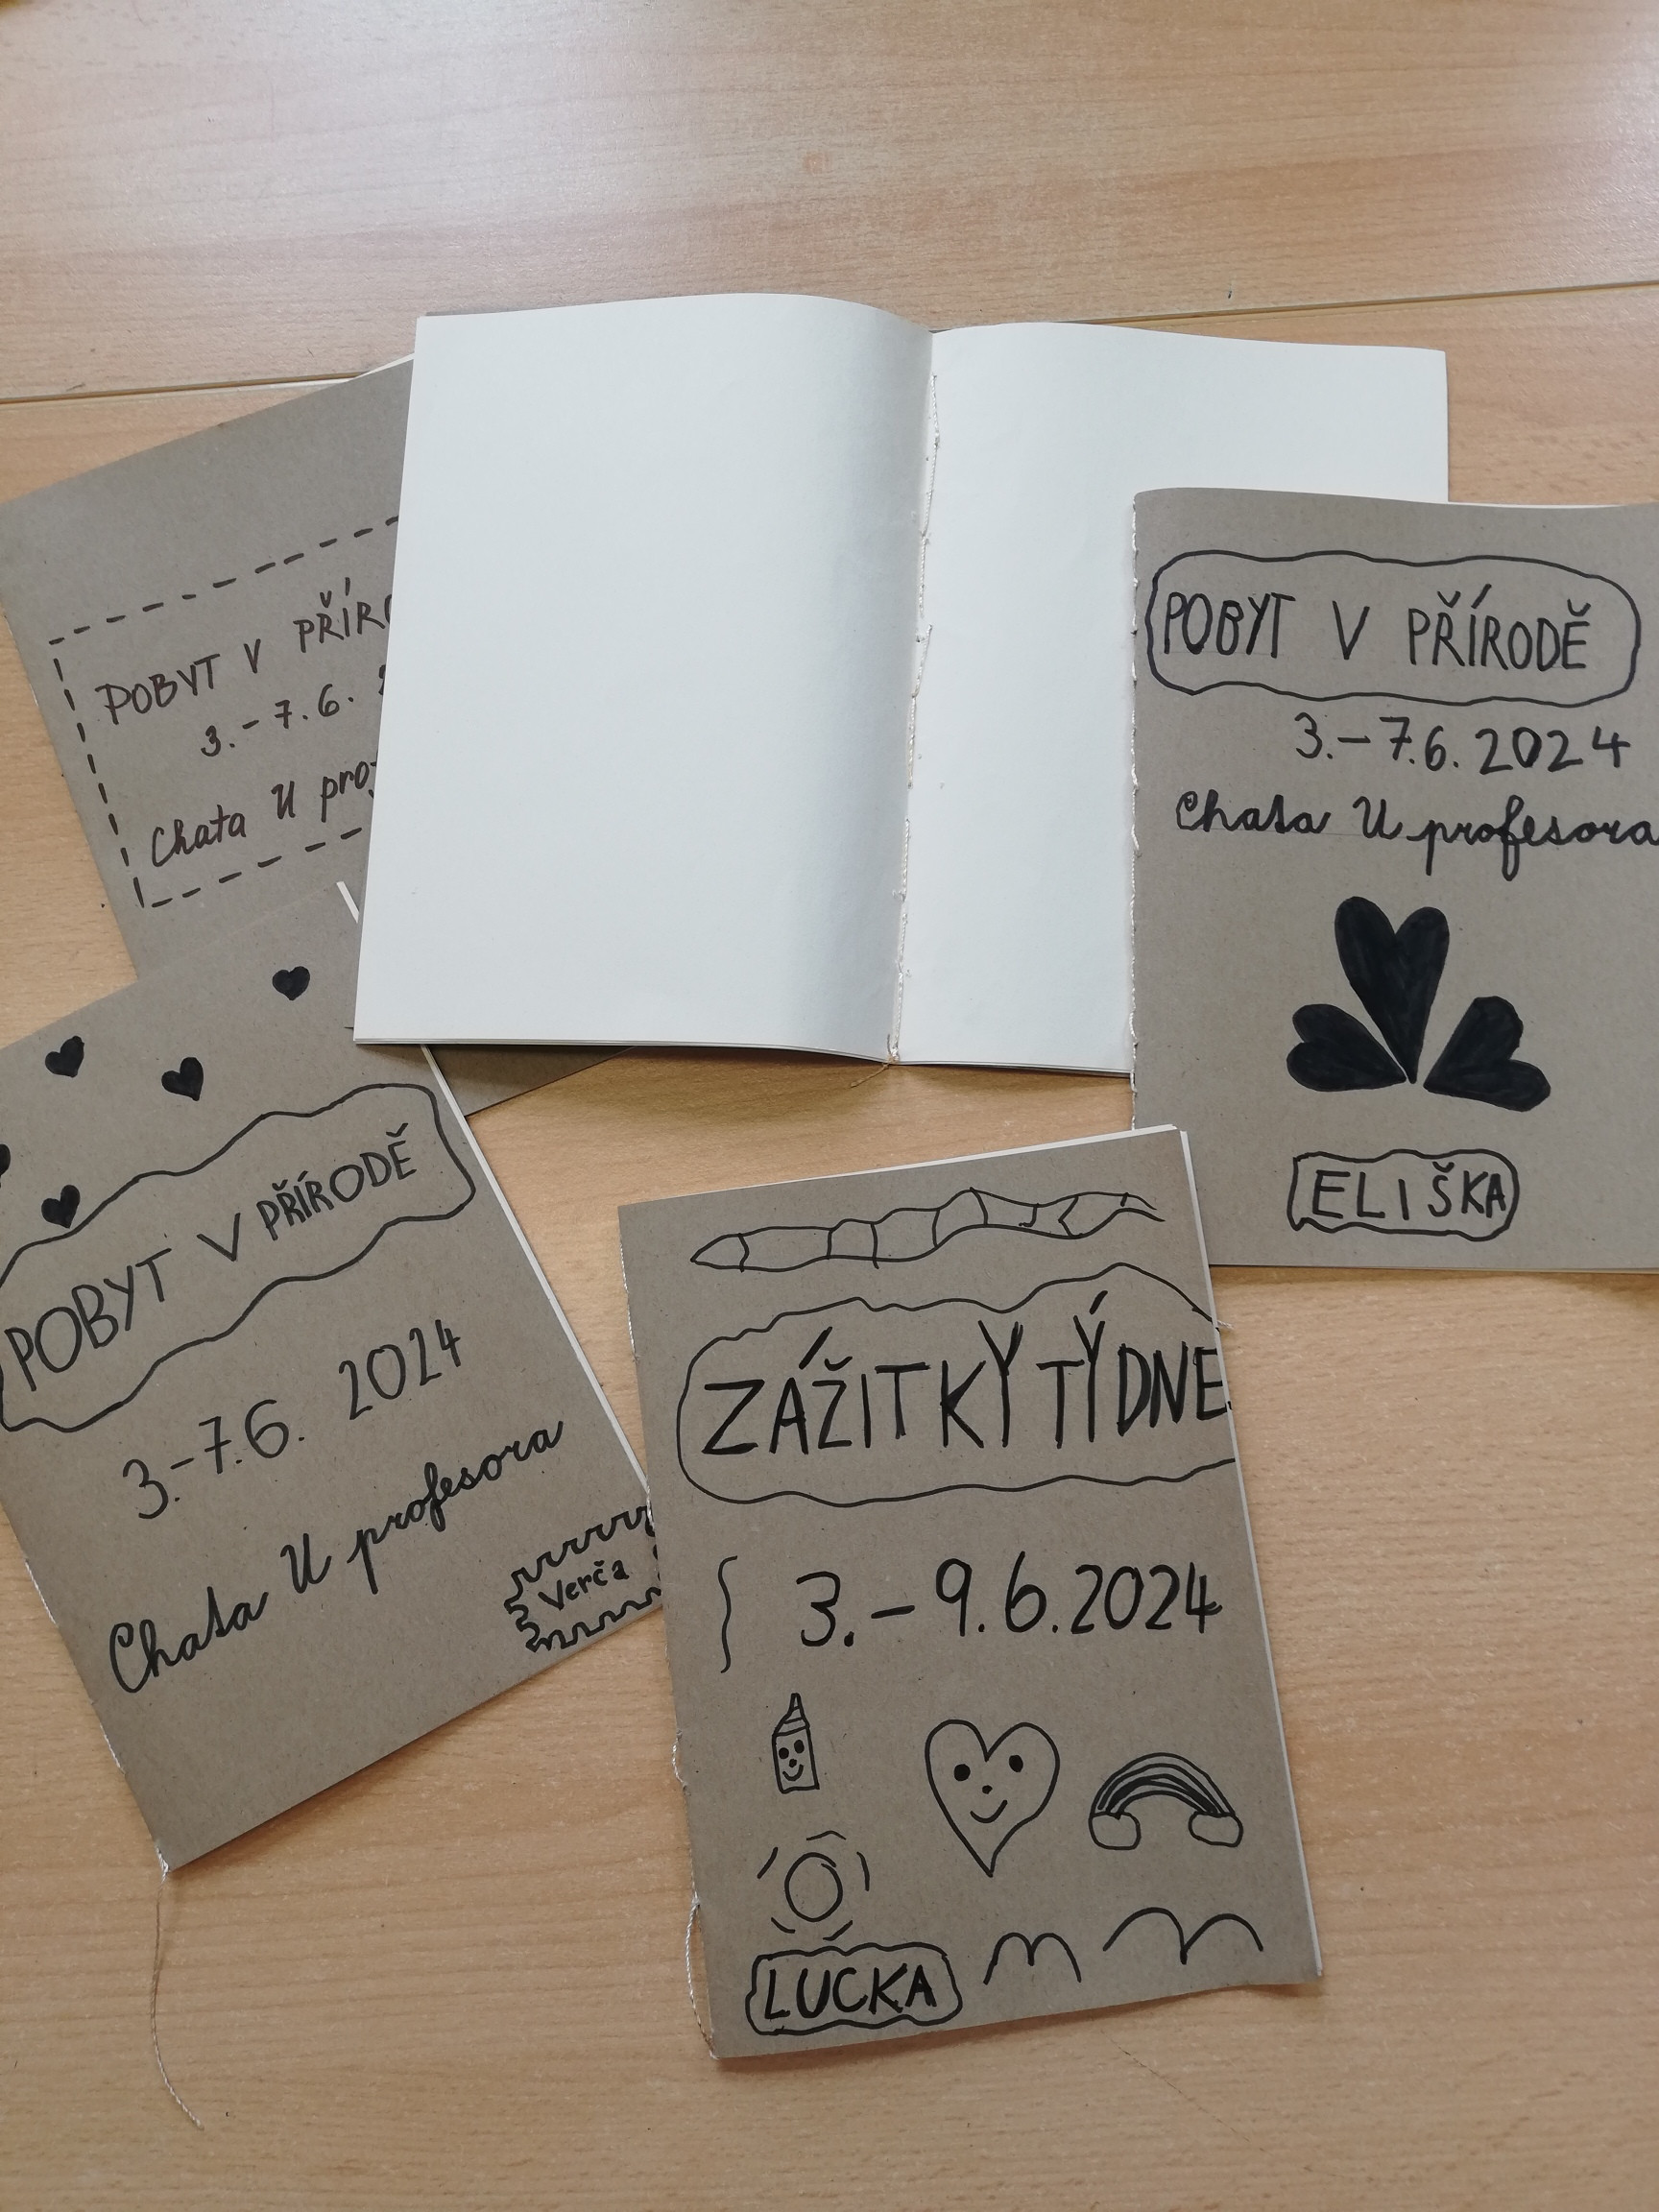 POBYT V
3.-7.6.
Chata U
POBYT V PŘÍRODĚ
3.-7.6.2024
Chata U profesora
ELIŠKA
POBYT V PŘÍRODĚ
3.-7.6. 2024
Chata U profesora
Verča
ZÁŽITKY TÝDNE
3.-9.6.2024
LUCKA